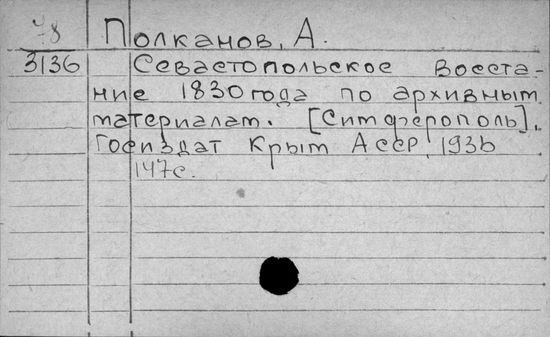 78 Полканов, А.
3136 Севастопольское восста-
ние 1830 года по архивным
материалам. [Симферополь],
Госиздат Крым АССР, 1936
147с.